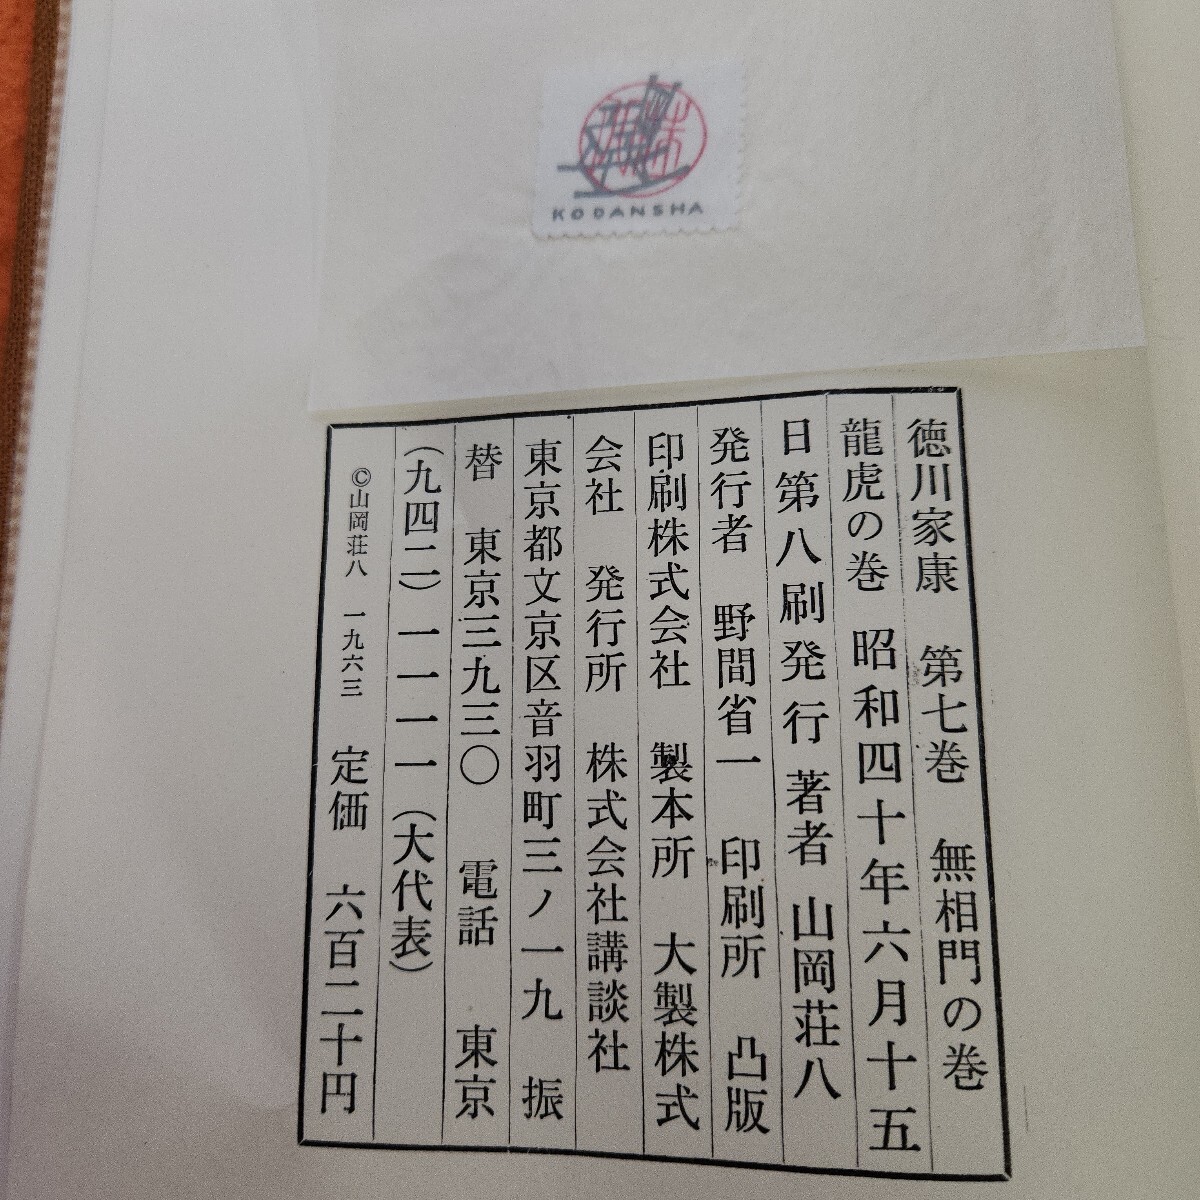 KODANSHA
徳川家康　第七巻　無相門の巻
龍虎の巻　昭和四十年六月十五
日第八刷発行 著者 山岡荘八
発行者　野間省一　印刷所　凸版
印刷株式会社　製本所　大製株式
会社　発行所　株式会社講談社
東京都文京区音羽町三ノ一九　振
替　東京三九三〇　電話　東京
（九四二）一一一一（大代表）
©山岡荘八　一九六三　定価　六百二十円